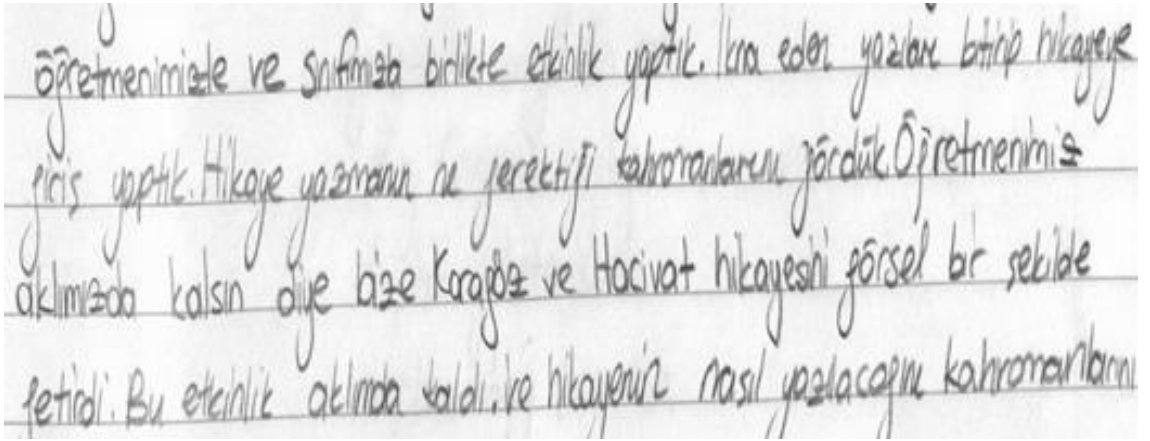 öğretmenimizle ve sınıfımızla birlikte etkinlik yaptık. İkna eden yazıları bitirip hikayeye
giriş yaptık. Hikaye yazmanın ne gerektiği kahramanlarını gördük. Öğretmenimiz
aklımızda kalsın diye bize Karagöz ve Hacivat hikayesini görsel bir şekilde
getirdi. Bu etkinlik aklımda kaldı. Ve hikayenin nasıl yazılacağını kahramanlarını